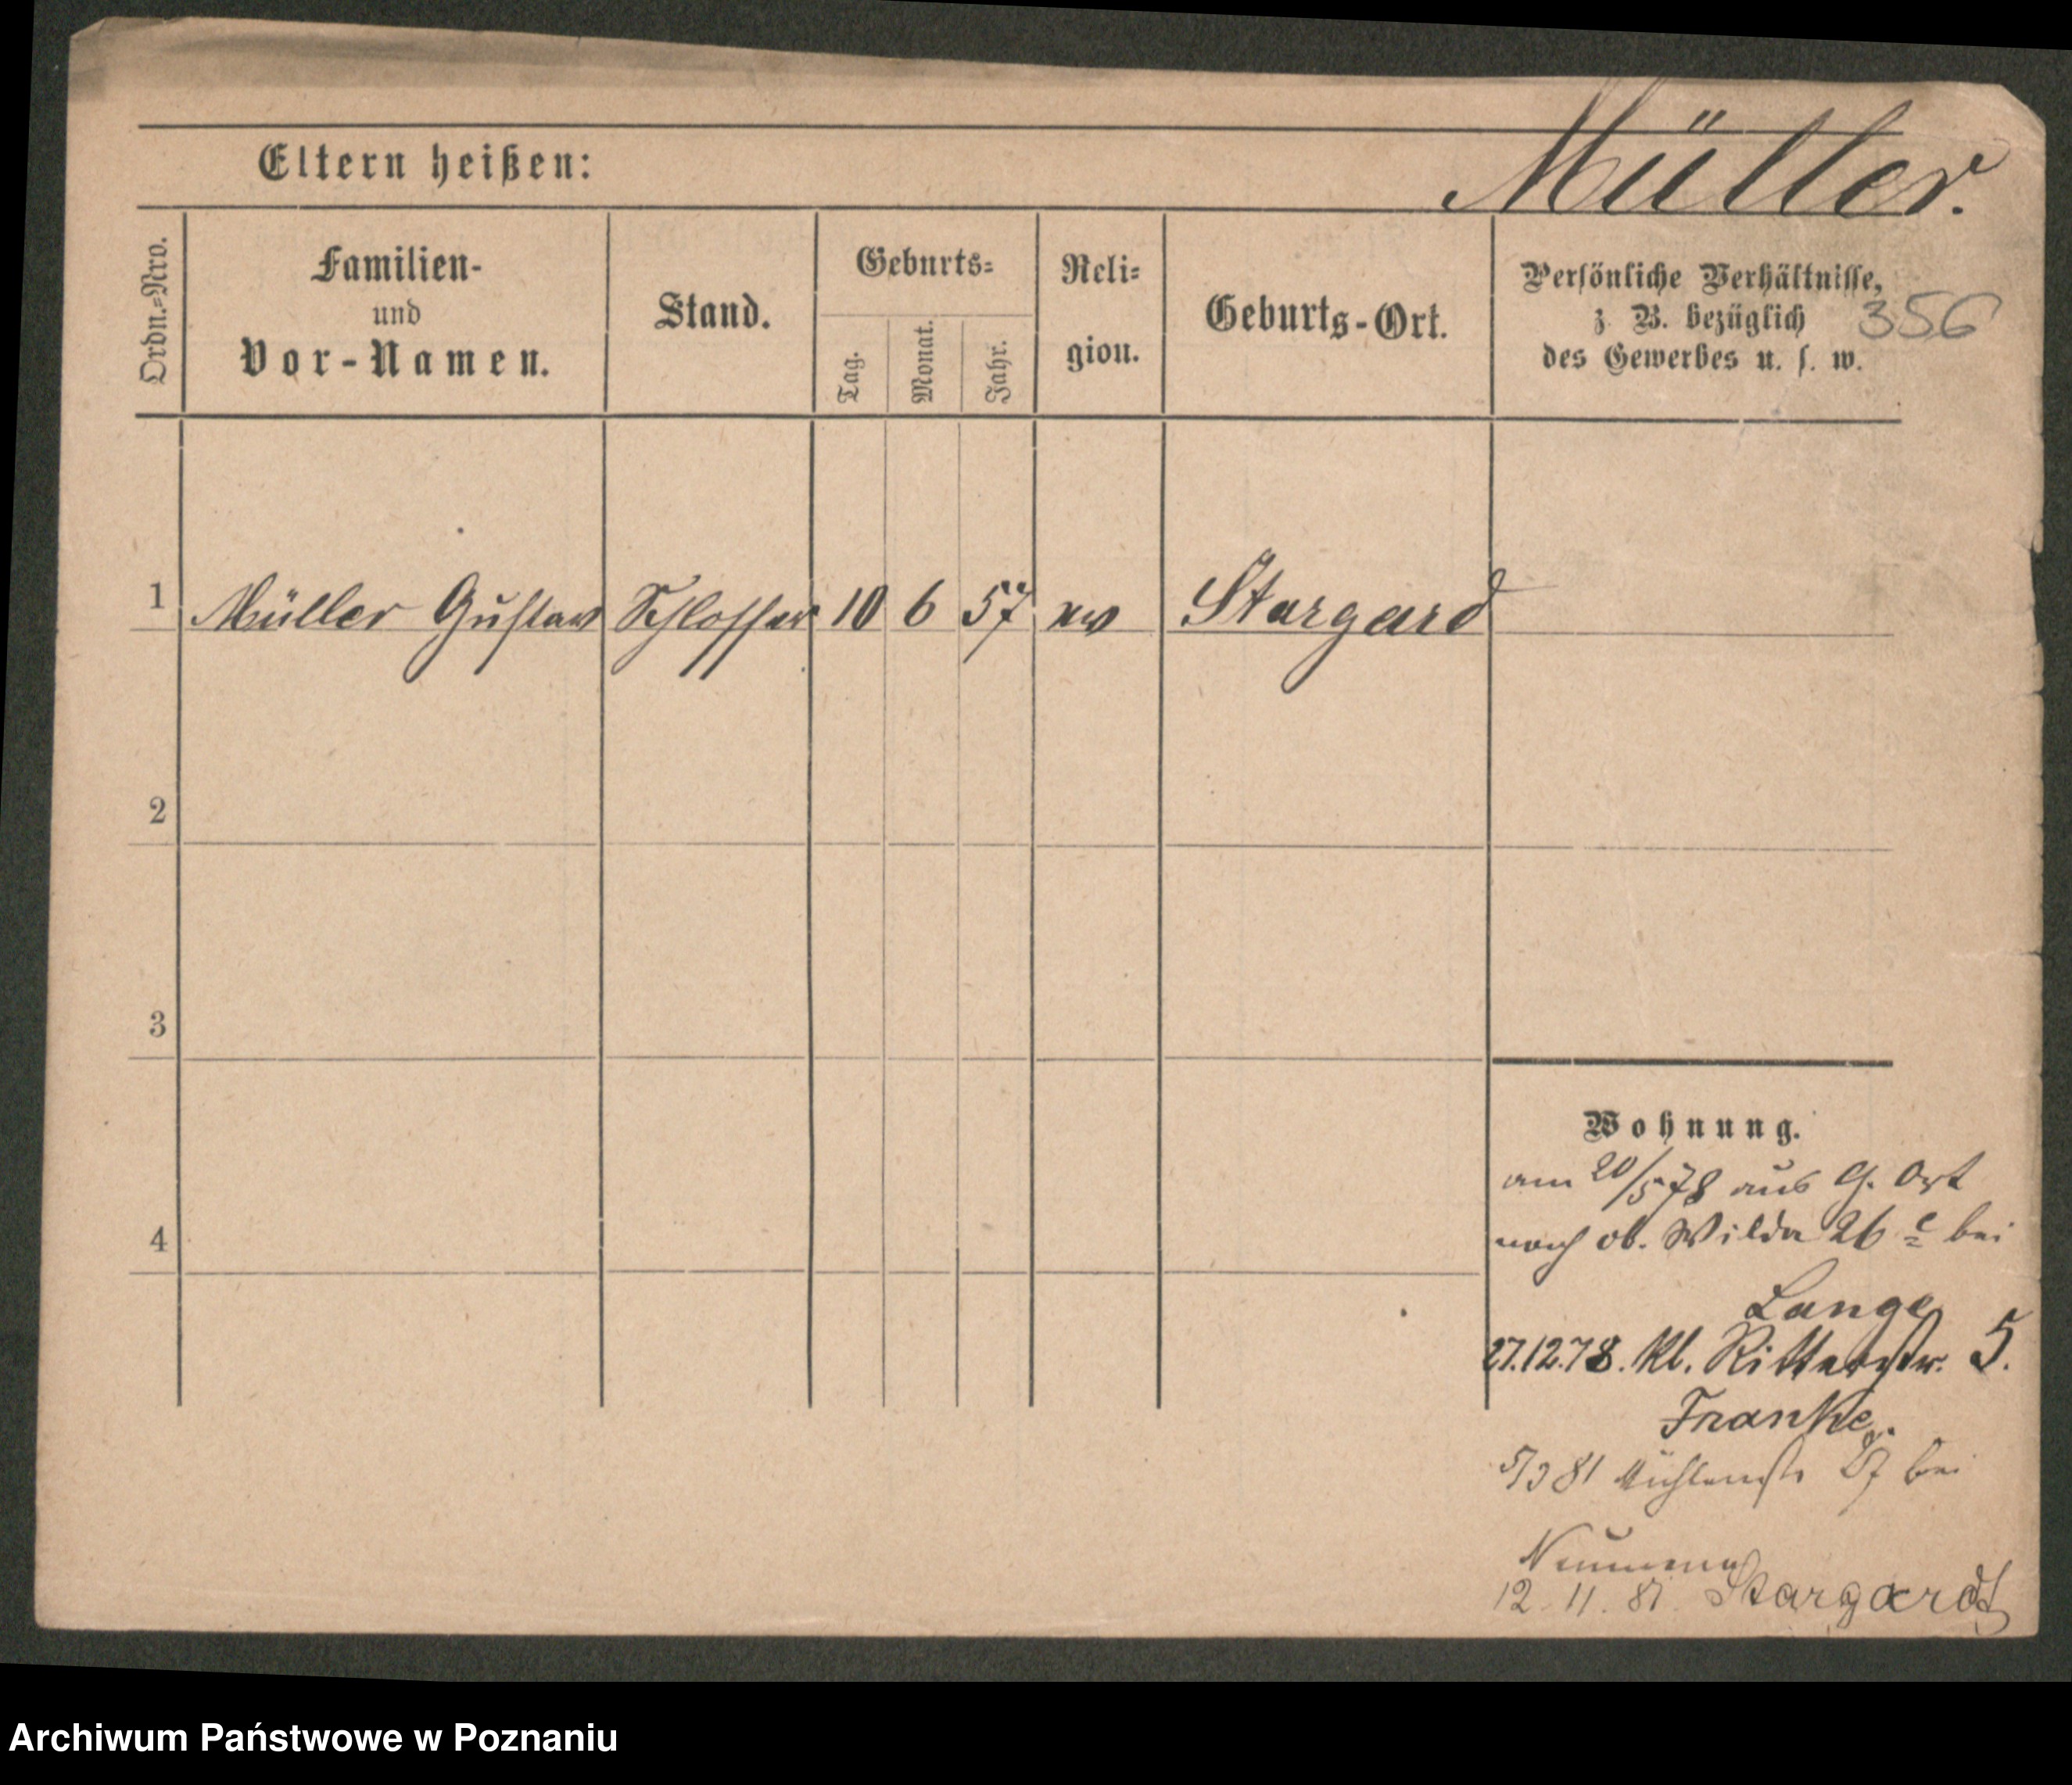 Müller.
Eltern heißen:
Ordn.=Nro.
Familien-
und
Vor-Namen.
Stand.
Geburts=
Tag.
Monat.
Jahr.
Reli=
gion.
Geburts-Ort.
Persönliche Verhältnisse,
z. B. bezüglich
des Gewerbes u. s. w.
356
1 Müller Gustav Schlosser 10 6 57 ev Stargard
2
3
4
Wohnung.
am 20/5 78 aus G. Ort
nach ob. Wilda 26 c bei
Lange
27.12.78. Kl. Ritterstr. 5.
Franke.
5/3 81 Mühlenstr bei
Neumann
12. 11. 81. Stargardt
Archiwum Państwowe w Poznaniu